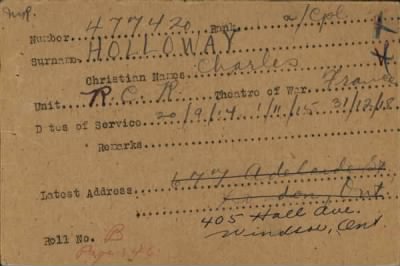 Number 477420 Rank a/Cpl.
Surname HOLLOWAY
Christian Names Charles
Unit R.C.R. Theatre of War France
Dates of Service 20/9/14 1/11/15 31/12/18
Remarks
Latest Address 677 Adelaide St
London, Ont
405 Hall Ave.
Windsor, Ont
Roll No. B
Page